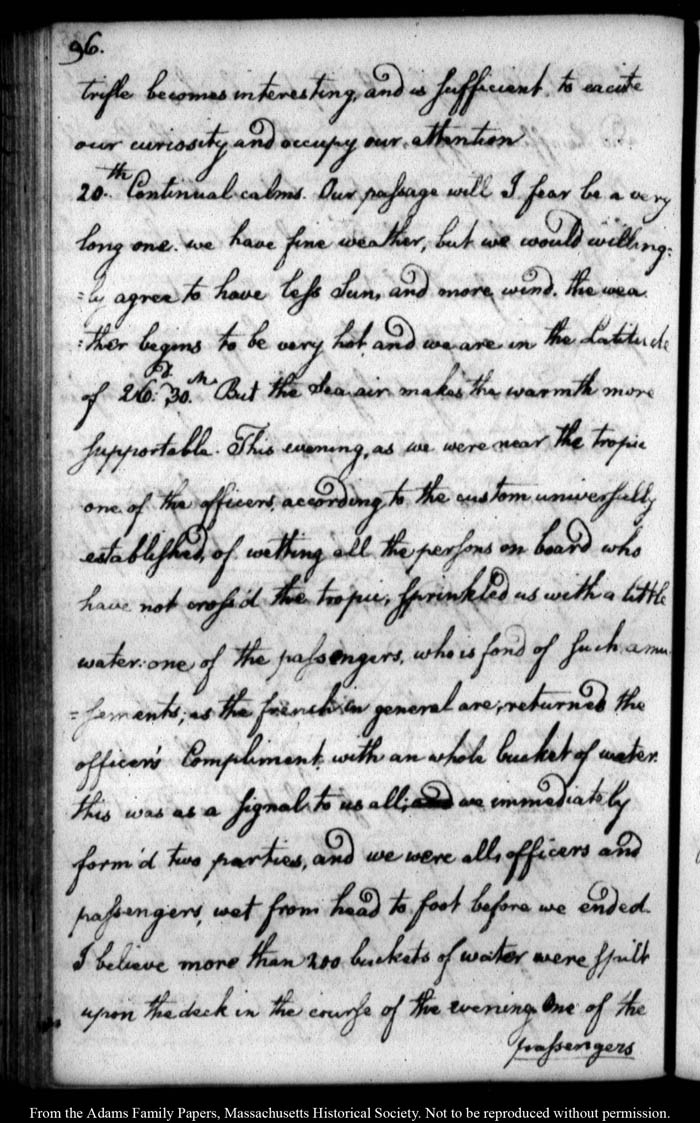 96.
trifle becomes interesting, and is sufficient to excite
our curiosity and occupy our attention
20th Continual calms. Our passage will I fear be a very
long one. we have fine weather, but we would willing=
=ly agree to have less Sun, and more wind. the wea
=ther begins to be very hot, and we are in the Latitude
of 26:d 30m But the Sea air makes the warmth more
supportable. This evening, as we were near the tropic
one of the officers, according to the custom universally
established, of wetting all the persons on board who
have not cross'd the tropic, sprinkled us with a little
water: one of the passengers, who is fond of such amu
=sements, as the french in general are, returned the
officer's Compliment, with an whole bucket of water.
this was as a signal to us all; and we immediately
form'd two parties, and we were all, officers and
passengers, wet from head to foot before we ended.
I believe more than 200 buckets of water were spilt
upon the deck in the course of the evening One of the
passengers
From the Adams Family Papers, Massachusetts Historical Society. Not to be reproduced without permission.